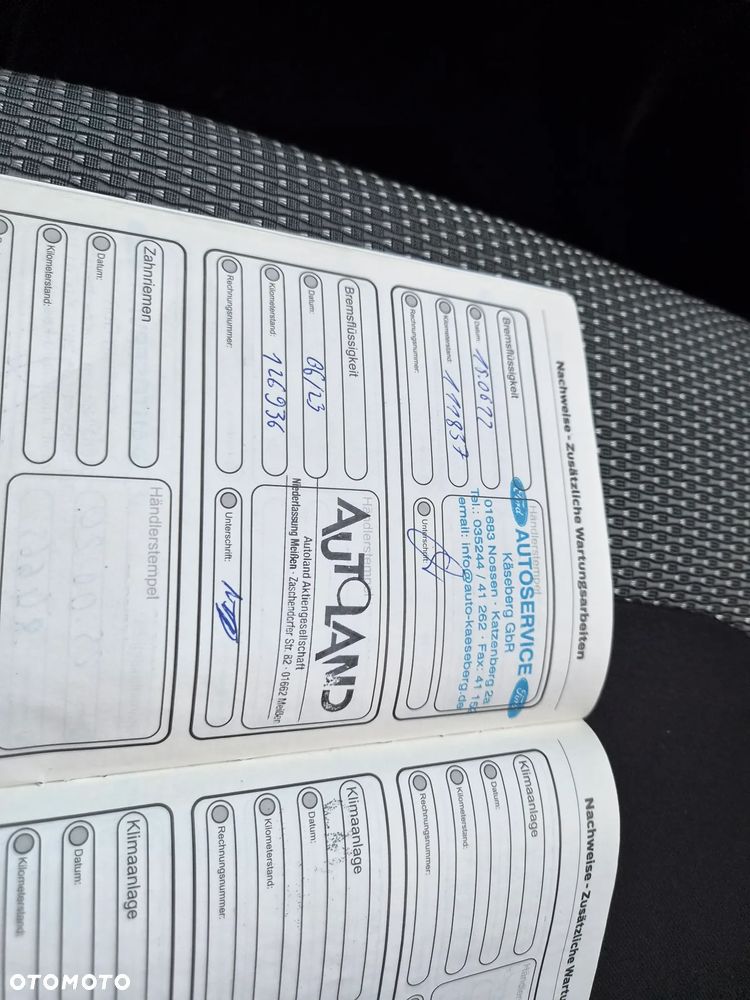 Nachweise - Zusätzliche Wartungsarbeiten
Bremsflüssigkeit
Datum: 15.06.22
Kilometerstand: 111837
Rechnungsnummer:
Händlerstempel
Ford AUTOSERVICE Ford
Käseberg GbR
01683 Nossen · Katzenberg 2a
Tel.: 035244 / 41 262 · Fax: 41 152
email: info@auto-kaeseberg.de
Unterschrift:
Bremsflüssigkeit
Datum: 06/23
Kilometerstand: 126936
Rechnungsnummer:
Händlerstempel
AUTOLAND
Autoland Aktiengesellschaft
Niederlassung Meißen · Zaschendorfer Str. 82 · 01662 Meißen
Unterschrift:
Zahnriemen
Datum:
Kilometerstand:
Händlerstempel
Nachweise - Zusätzliche Wartu
Klimaanlage
Datum:
Kilometerstand:
Rechnungsnummer:
Händler
Klimaanlage
Datum:
Kilometerstand:
Rechnungsnummer:
Klimaanlage
Datum:
Kilometerstand:
OTOMOTO